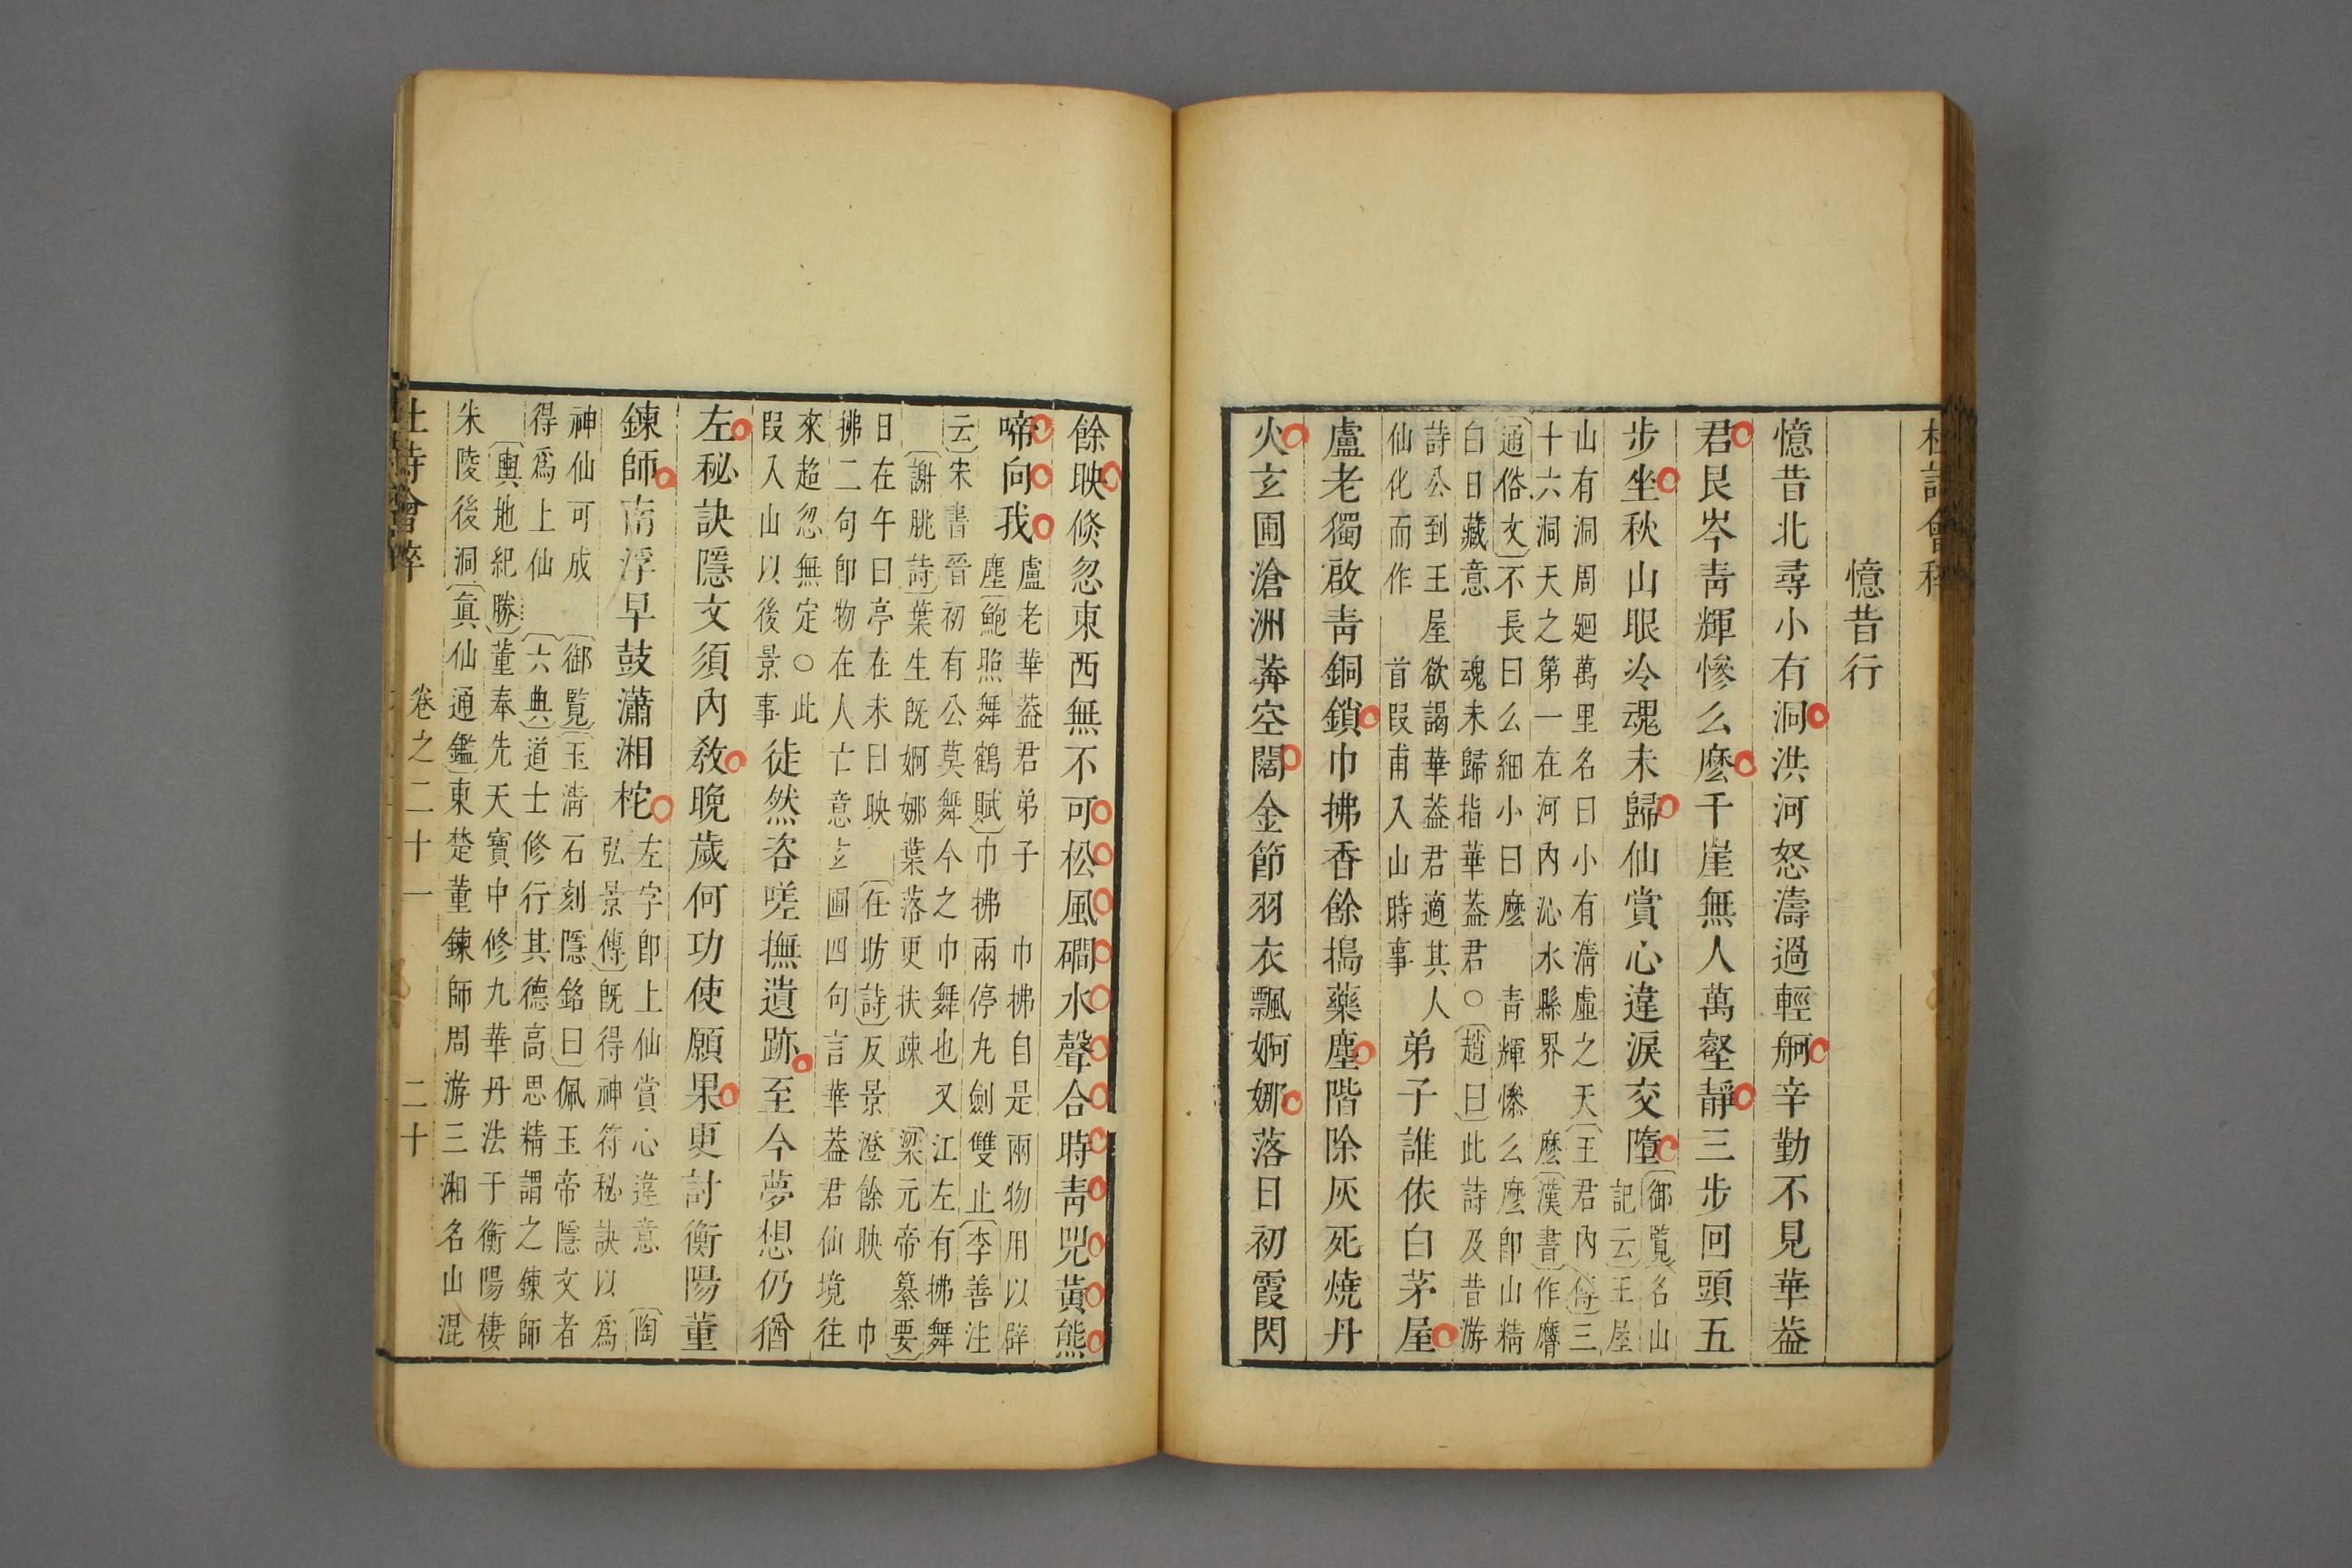 杜詩會稡
憶昔行
憶昔北尋小有洞洪河怒濤過輕舸辛勤不見華葢
君艮岑靑輝慘么麽千崖無人萬壑靜三步回頭五
步坐秋山眼冷魂未歸仙賞心違淚交墮
〔御覧〕名山
記云王屋
山有洞周廻萬里名曰小有淸虛之天〔王君内傳〕三
十六洞天之第一在河内沁水縣界 麽〔漢書〕作麿
〔通俗文〕不長曰么細小曰麽 靑輝慘么麽卽山精
白日藏意 魂未歸指華葢君○〔趙曰〕此詩及昔游
詩公到王屋欲謁華葢君適其人
仙化而作 首叚甫入山時事
弟子誰依白茅屋
盧老獨啟靑銅鎖巾拂香餘搗藥塵階除灰死燒丹
火玄圃滄洲莽空闊金節羽衣飄婀娜落日初霞閃
餘映倏忽東西無不可松風磵水聲合時靑兕黃熊
啼向我
盧老華葢君弟子 巾拂自是兩物用以辟
塵〔鮑照舞鶴賦〕巾拂兩停丸劍雙止〔李善注
云〕宋書晉初有公莫舞今之巾舞也又江左有拂舞
〔謝朓詩〕葉生旣婀娜葉落更扶疎 〔梁元帝纂要〕
日在午曰亭在未曰映 〔在昉詩〕反景澄餘映 巾
拂二句卽物在人亡意玄圃四句言華葢君仙境往
來超忽無定○此
叚入山以後景事
徒然咨嗟撫遺跡至今夢想仍猶
左秘訣隱文須内敎晚歲何功使願果更討衡陽董
鍊師南浮早鼓瀟湘柁
左字卽上仙賞心違意 〔陶
弘景傳〕旣得神符秘訣以爲
神仙可成 〔御覧〕〔玉淸石刻隱銘曰〕佩玉帝隱文者
得爲上仙 〔六典〕道士修行其德高思精謂之鍊師
〔輿地紀勝〕董奉先天寶中修九華丹法于衡陽棲
朱陵後洞〔眞仙通鑑〕東楚董鍊師周游三湘名山混
杜詩會稡 卷之二十一 二十